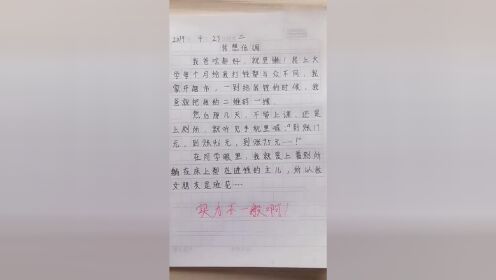 2019 4 29 二
我想低调
我爸啥都好，就是懒！我上大
学每个月给我打钱都与众不同，我
家开超市，一到给我钱的时候，我
爸就把我的二维码一摆。
然后那几天，不管上课，还是
上厕所，就听见手机里喊："到账17
元，到账46元，到账75元……！"
在同学眼里，我就是上着厕所
躺在床上都在进钱的主儿，所以我
女朋友是班花…
实力不一般啊！